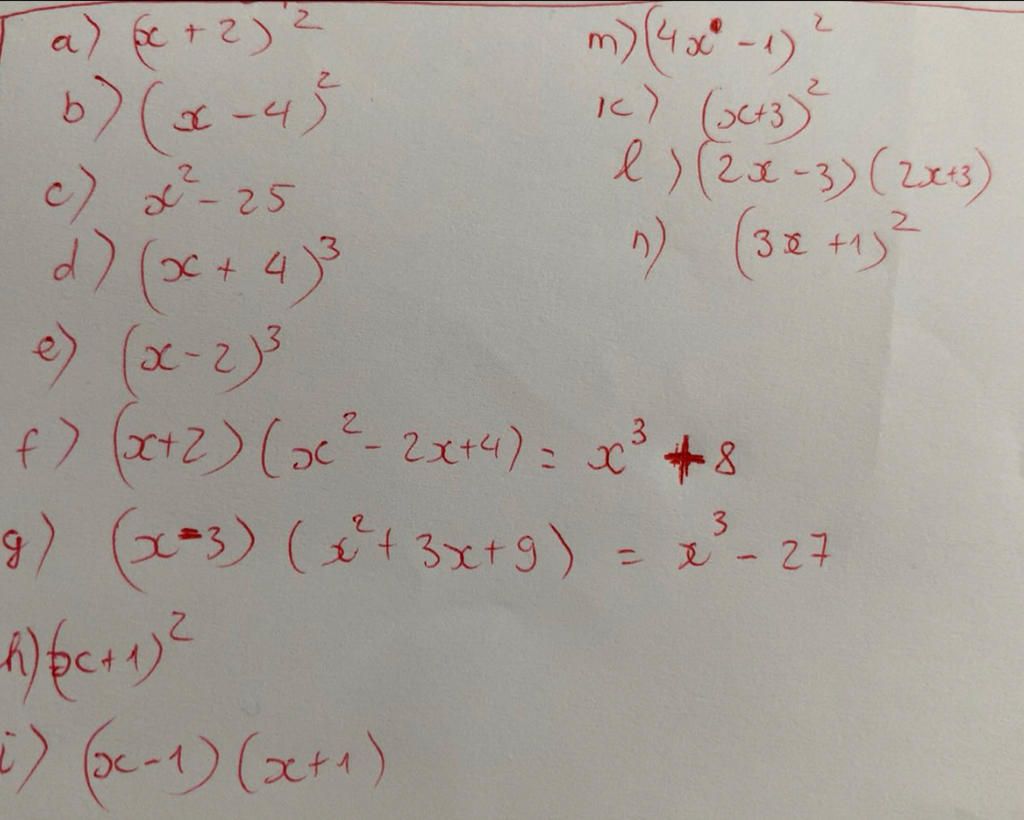 a) (x + 2)²
b) (x - 4)²
c) x² - 25
d) (x + 4)³
e) (x - 2)³
f) (x+2) (x² - 2x+4) = x³ + 8
g) (x-3) (x² + 3x+9) = x³ - 27
h) (x+1)²
i) (x-1) (x+1)
m) (4x - 1)²
k) (x+3)²
l) (2x - 3) (2x+3)
n) (3x +1)²